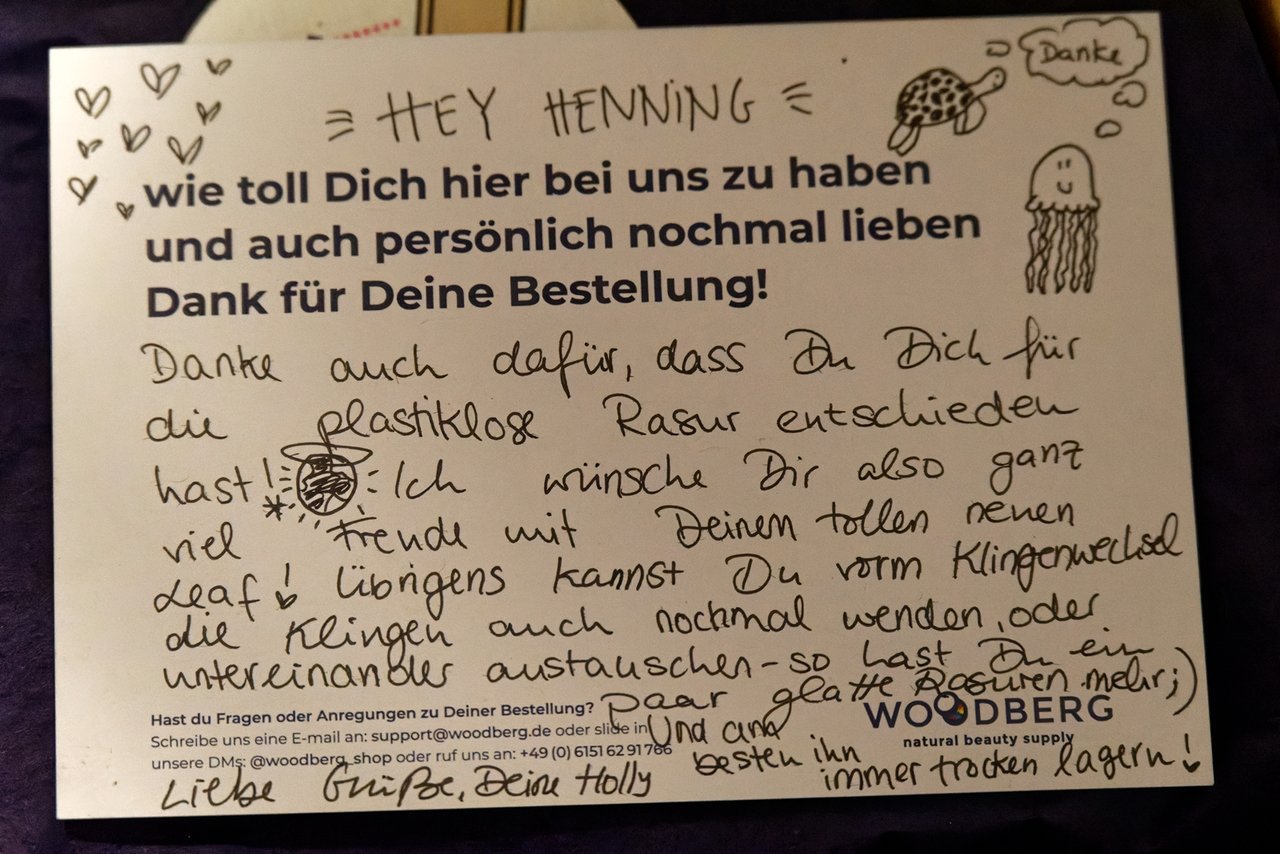 HEY HENNING
Danke
wie toll Dich hier bei uns zu haben
und auch persönlich nochmal lieben
Dank für Deine Bestellung!
Danke auch dafür, dass Du Dich für
die plastiklose Rasur entschieden
hast! Ich wünsche Dir also ganz
viel Freude mit Deinem tollen neuen
Leaf! Übrigens kannst Du vorm Klingenwechsel
die Klingen auch nochmal wenden, oder
untereinander austauschen - so hast Du ein
paar glatte Rasuren mehr ;)
Und am
besten ihn
immer trocken lagern!
Hast du Fragen oder Anregungen zu Deiner Bestellung?
Schreibe uns eine E-mail an: support@woodberg.de oder slide in
unsere DMs: @woodberg_shop oder ruf uns an: +49 (0) 6151 62 91 766
WOODBERG
natural beauty supply
Liebe Grüße, Deine Holly